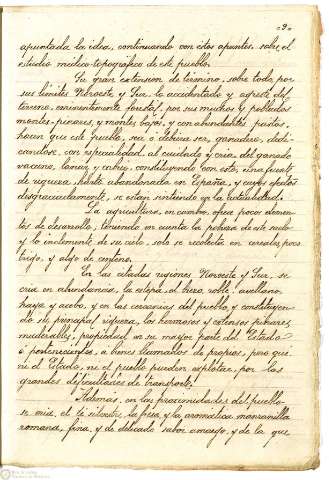 9
apuntada la idea, continuando con estos apuntes sobre el
estudio médico-topográfico de este pueblo.
Su gran extension de término, sobre todo por
sus límites Noroeste y Sur, lo accidentado y agreste del
terreno, eminentemente forestal, por sus muchos y poblados
montes-pinares, y montes bajos, y con abundantes pastos,
hacen que este pueblo, sea ó debiera ser, ganadero, dedi-
cándose, con especialidad, al cuidado y cria del ganado
vacuno, lanar, y cabrío, constituyendo con esto, una fuente
de riqueza, harto abandonada en España, y cuyos efectos
desgraciadamente, se están sintiendo en la actualidad.
La agricultura, en cambio, ofrece pocos elemen-
tos de desarrollo, teniendo en cuenta la pobreza de este suelo
y lo inclemente de su cielo, solo se recolecta en cereales, poco
trigo, y algo de centeno.
En las citadas regiones Noroeste y Sur, se
cria en abundancia, la estepa, el brezo, roble, avellano,
haya y acebo, y en las cercanias del pueblo, y constituyen-
do su principal riqueza, los hermosos y extensos pinares,
maderables, propiedad en su mayor parte del Estado
ó pertenecientes, a bienes llamados de propios, pero que
ni el Estado, ni el pueblo pueden explotar, por las
grandes dificultades de transporte.
Además, en las proximidades del pueblo
se cria, el té silvestre, la fresa, y la aromática manzanilla
romana, fina, y de delicado sabor amargo, y de la que